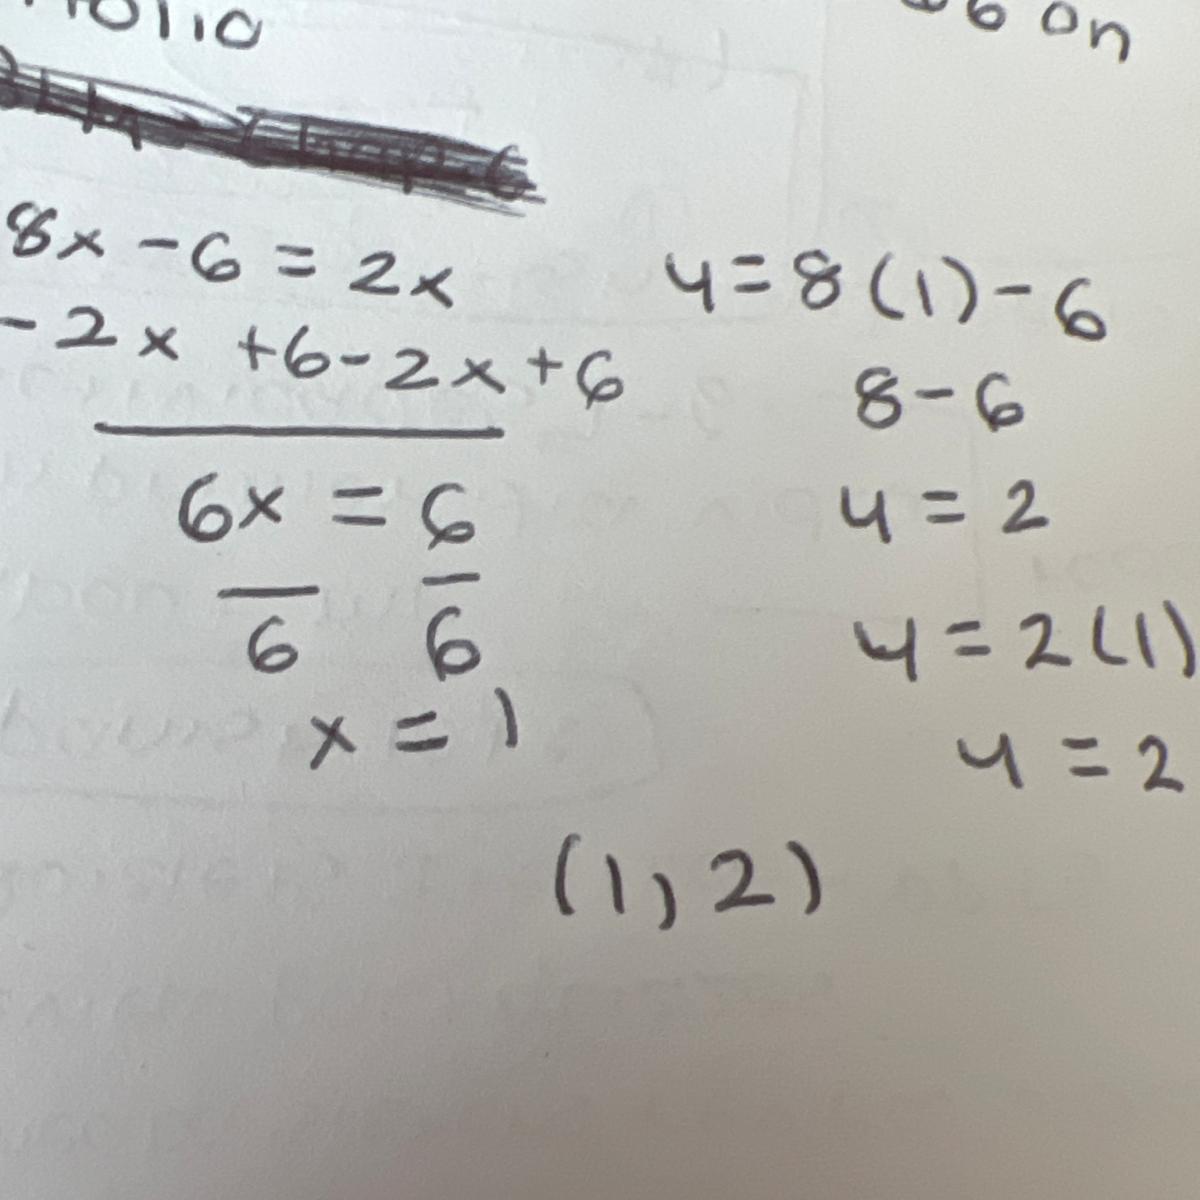 on
8x - 6 = 2x
- 2x +6 - 2x + 6
6x = 6
6 6
x = 1
y = 8(1) - 6
8 - 6
y = 2
y = 2(1)
y = 2
(1, 2)